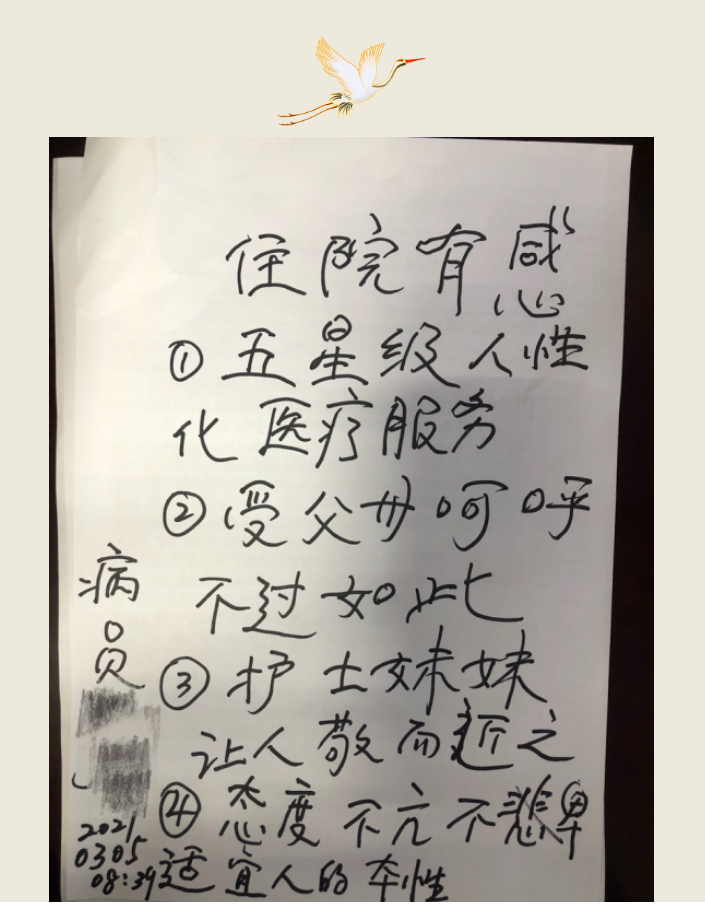 住院有感
①五星级人性
化医疗服务
②受父母呵呼
不过如此
③护士妹妹
让人敬而近之
④态度不亢不卑
适宜人的本性
病员
2021
0305
08:39